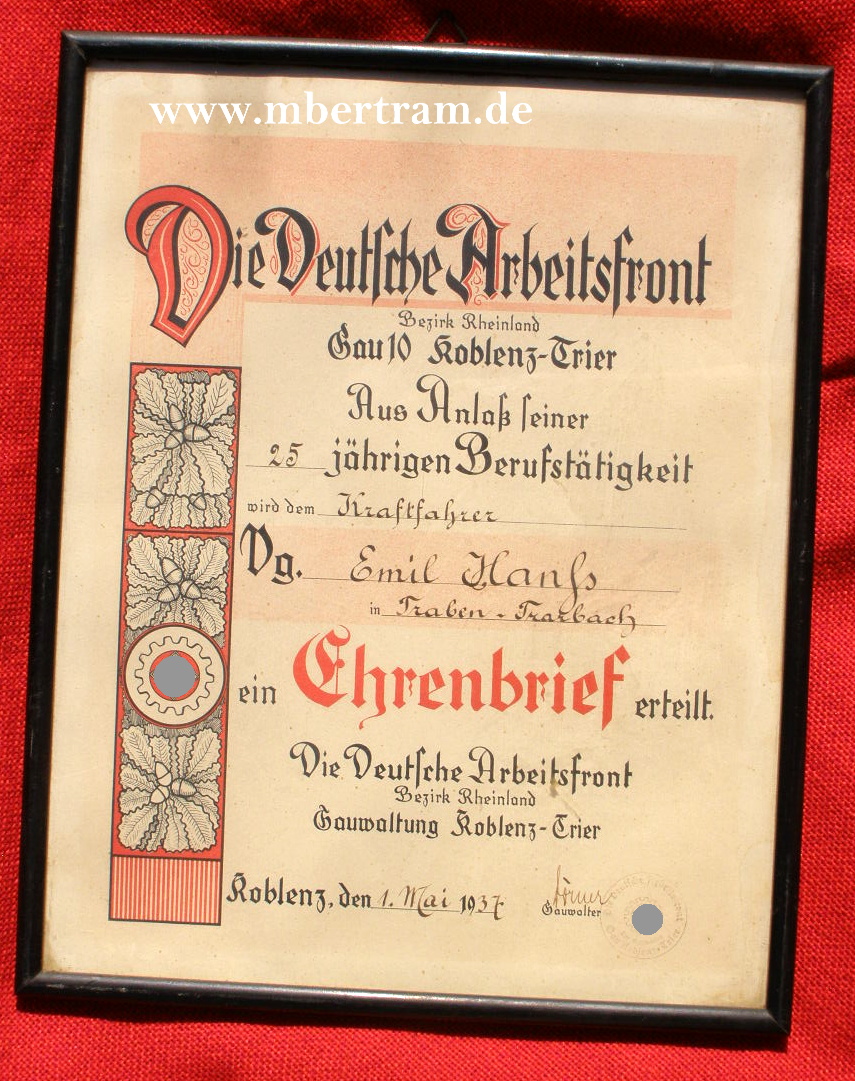 www.mbertram.de
Die Deutsche Arbeitsfront
Bezirk Rheinland
Gau 10 Koblenz-Trier
Aus Anlaß seiner
25 jährigen Berufstätigkeit
wird dem Kraftfahrer
Vg. Emil Hanss
in Traben-Trarbach
ein Ehrenbrief erteilt.
Die Deutsche Arbeitsfront
Bezirk Rheinland
Gauwaltung Koblenz-Trier
Koblenz, den 1. Mai 1937
Gauwalter